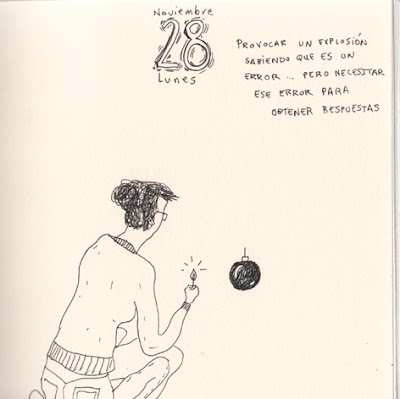 Noviembre
28
Lunes
PROVOCAR UN EXPLOSIÓN
SABIENDO QUE ES UN
ERROR... PERO NECESITAR
ESE ERROR PARA
OBTENER RESPUESTAS